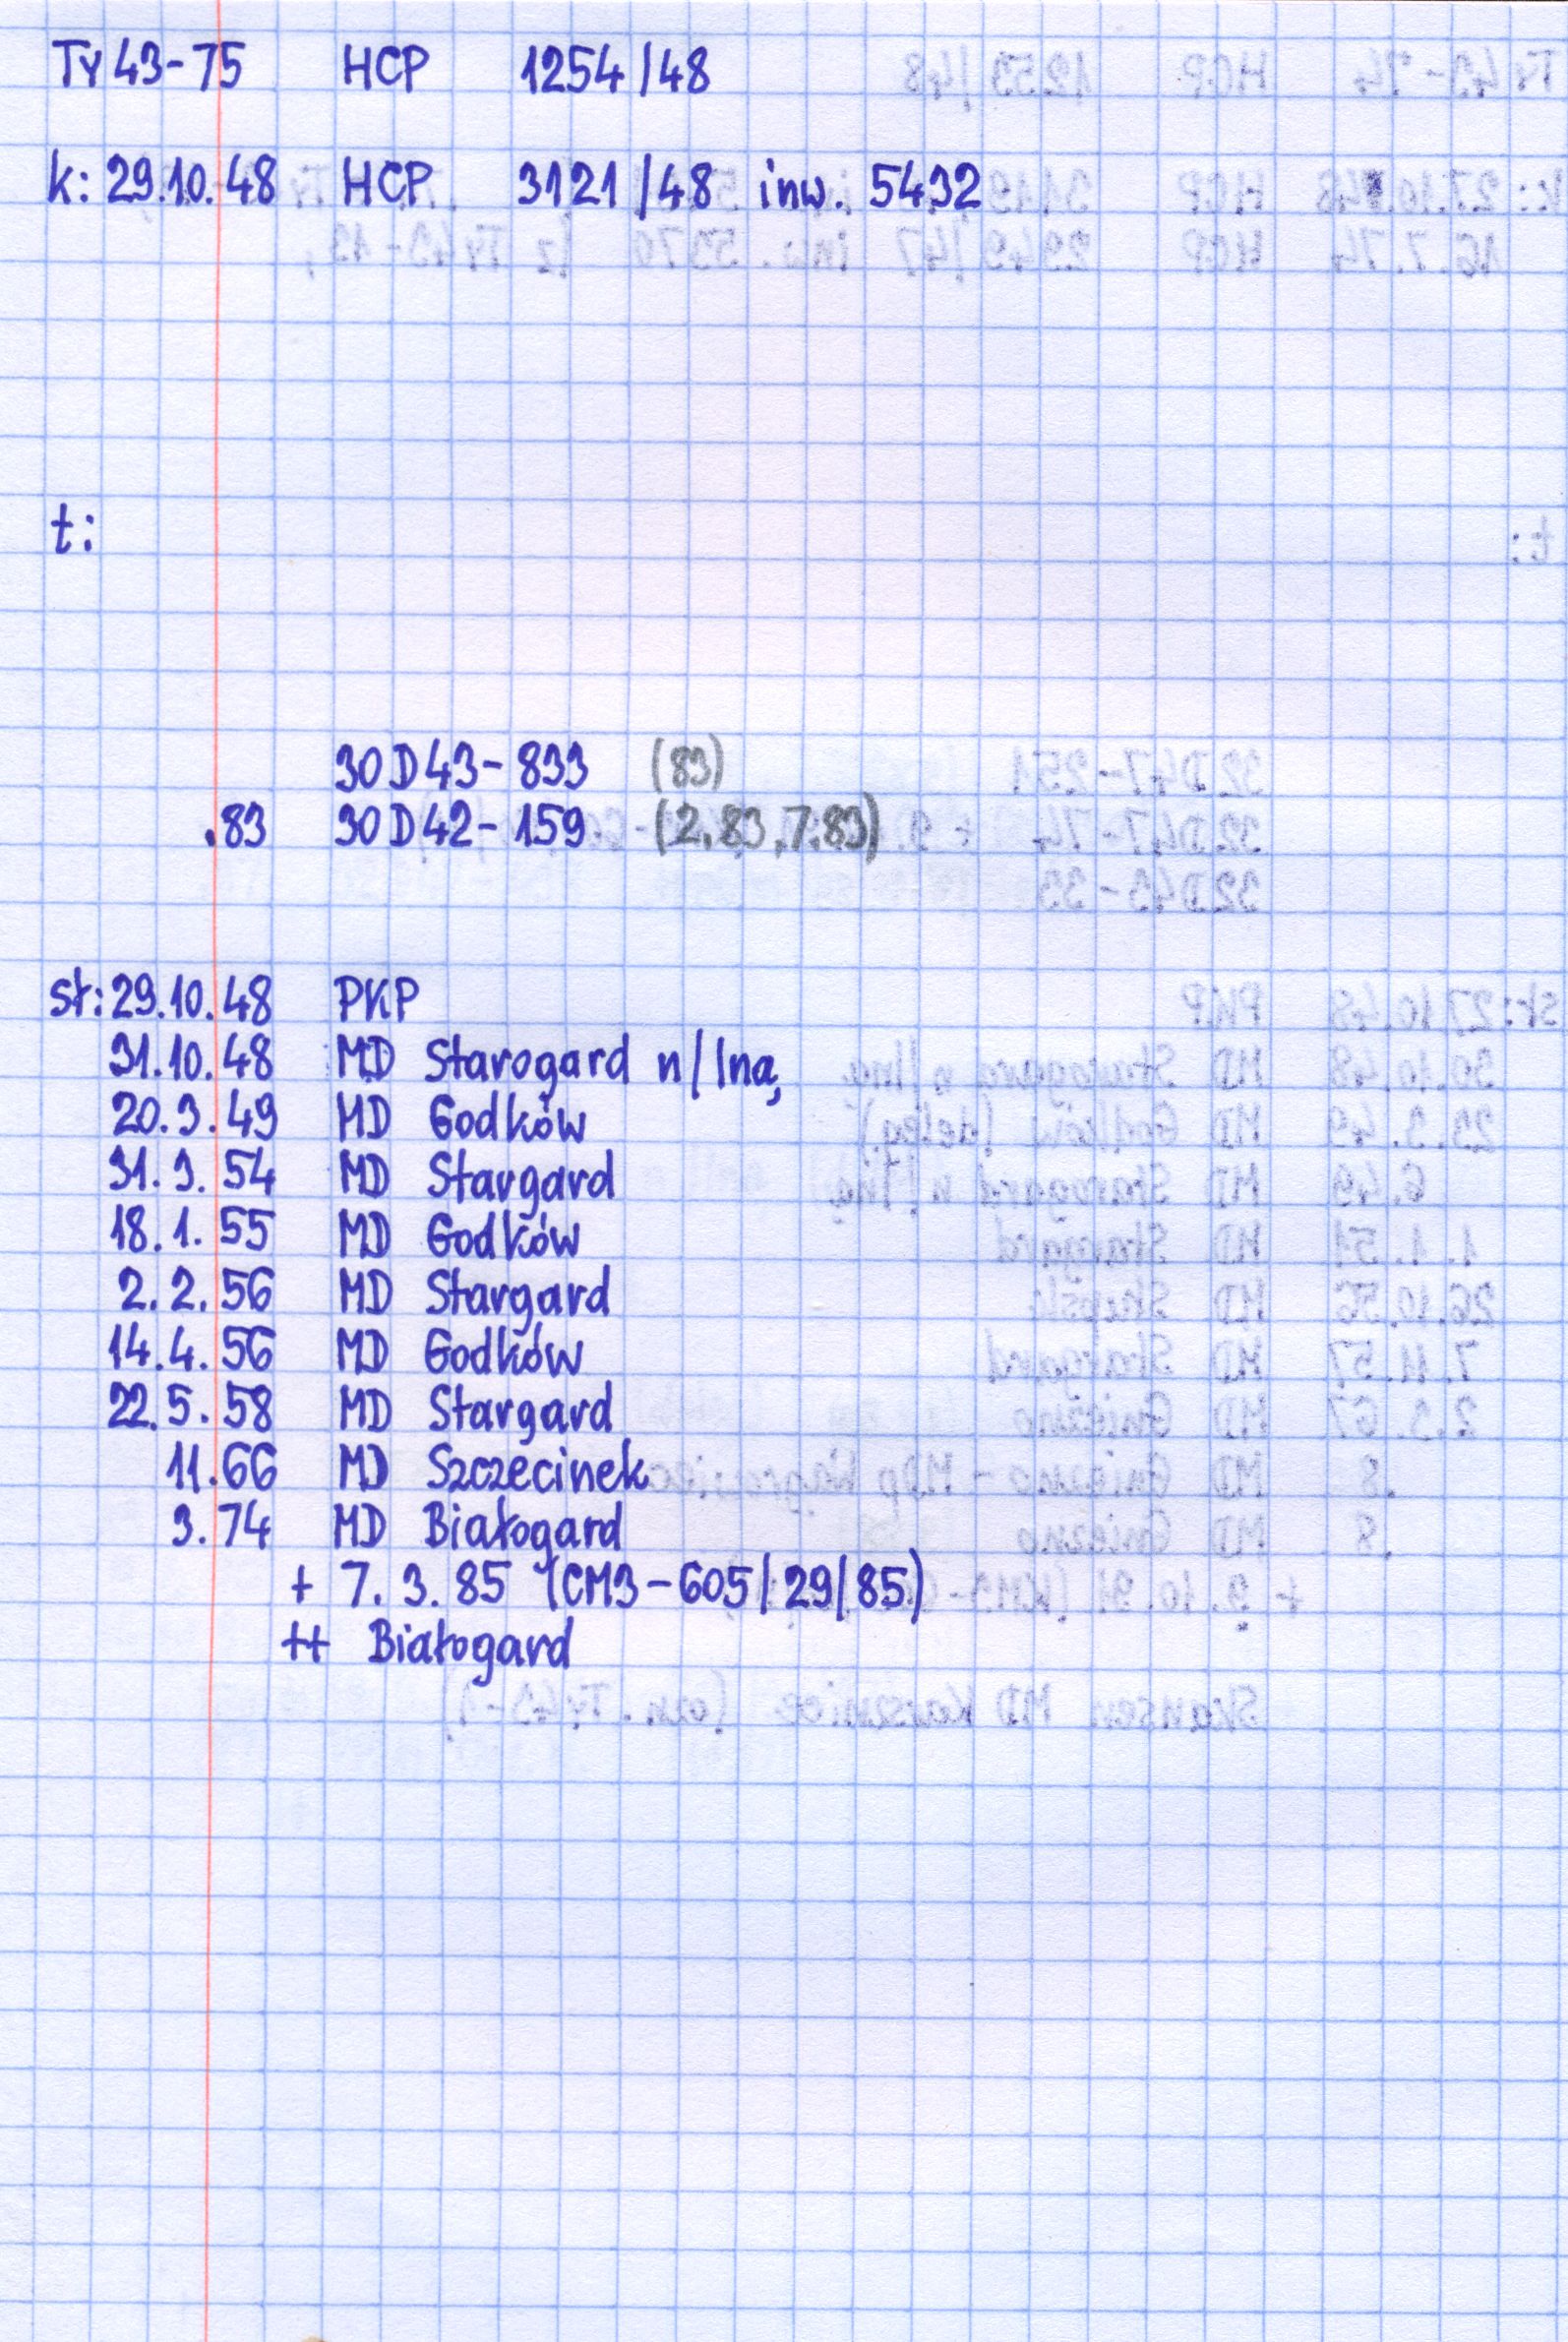 Ty43-75 HCP 1254/48
k: 29.10.48 HCP 3121/48 inw. 5432
t:
30D43-833 (83)
.83 30D42-159 (2.83, 7.83)
st: 29.10.48 PKP
31.10.48 MD Starogard n/Iną
20.3.49 MD Godków
31.3.54 MD Stargard
18.1.55 MD Godków
2.2.56 MD Stargard
14.4.56 MD Godków
22.5.58 MD Stargard
11.66 MD Szczecinek
3.74 MD Białogard
+ 7.3.85 (CM3-605/29/85)
++ Białogard